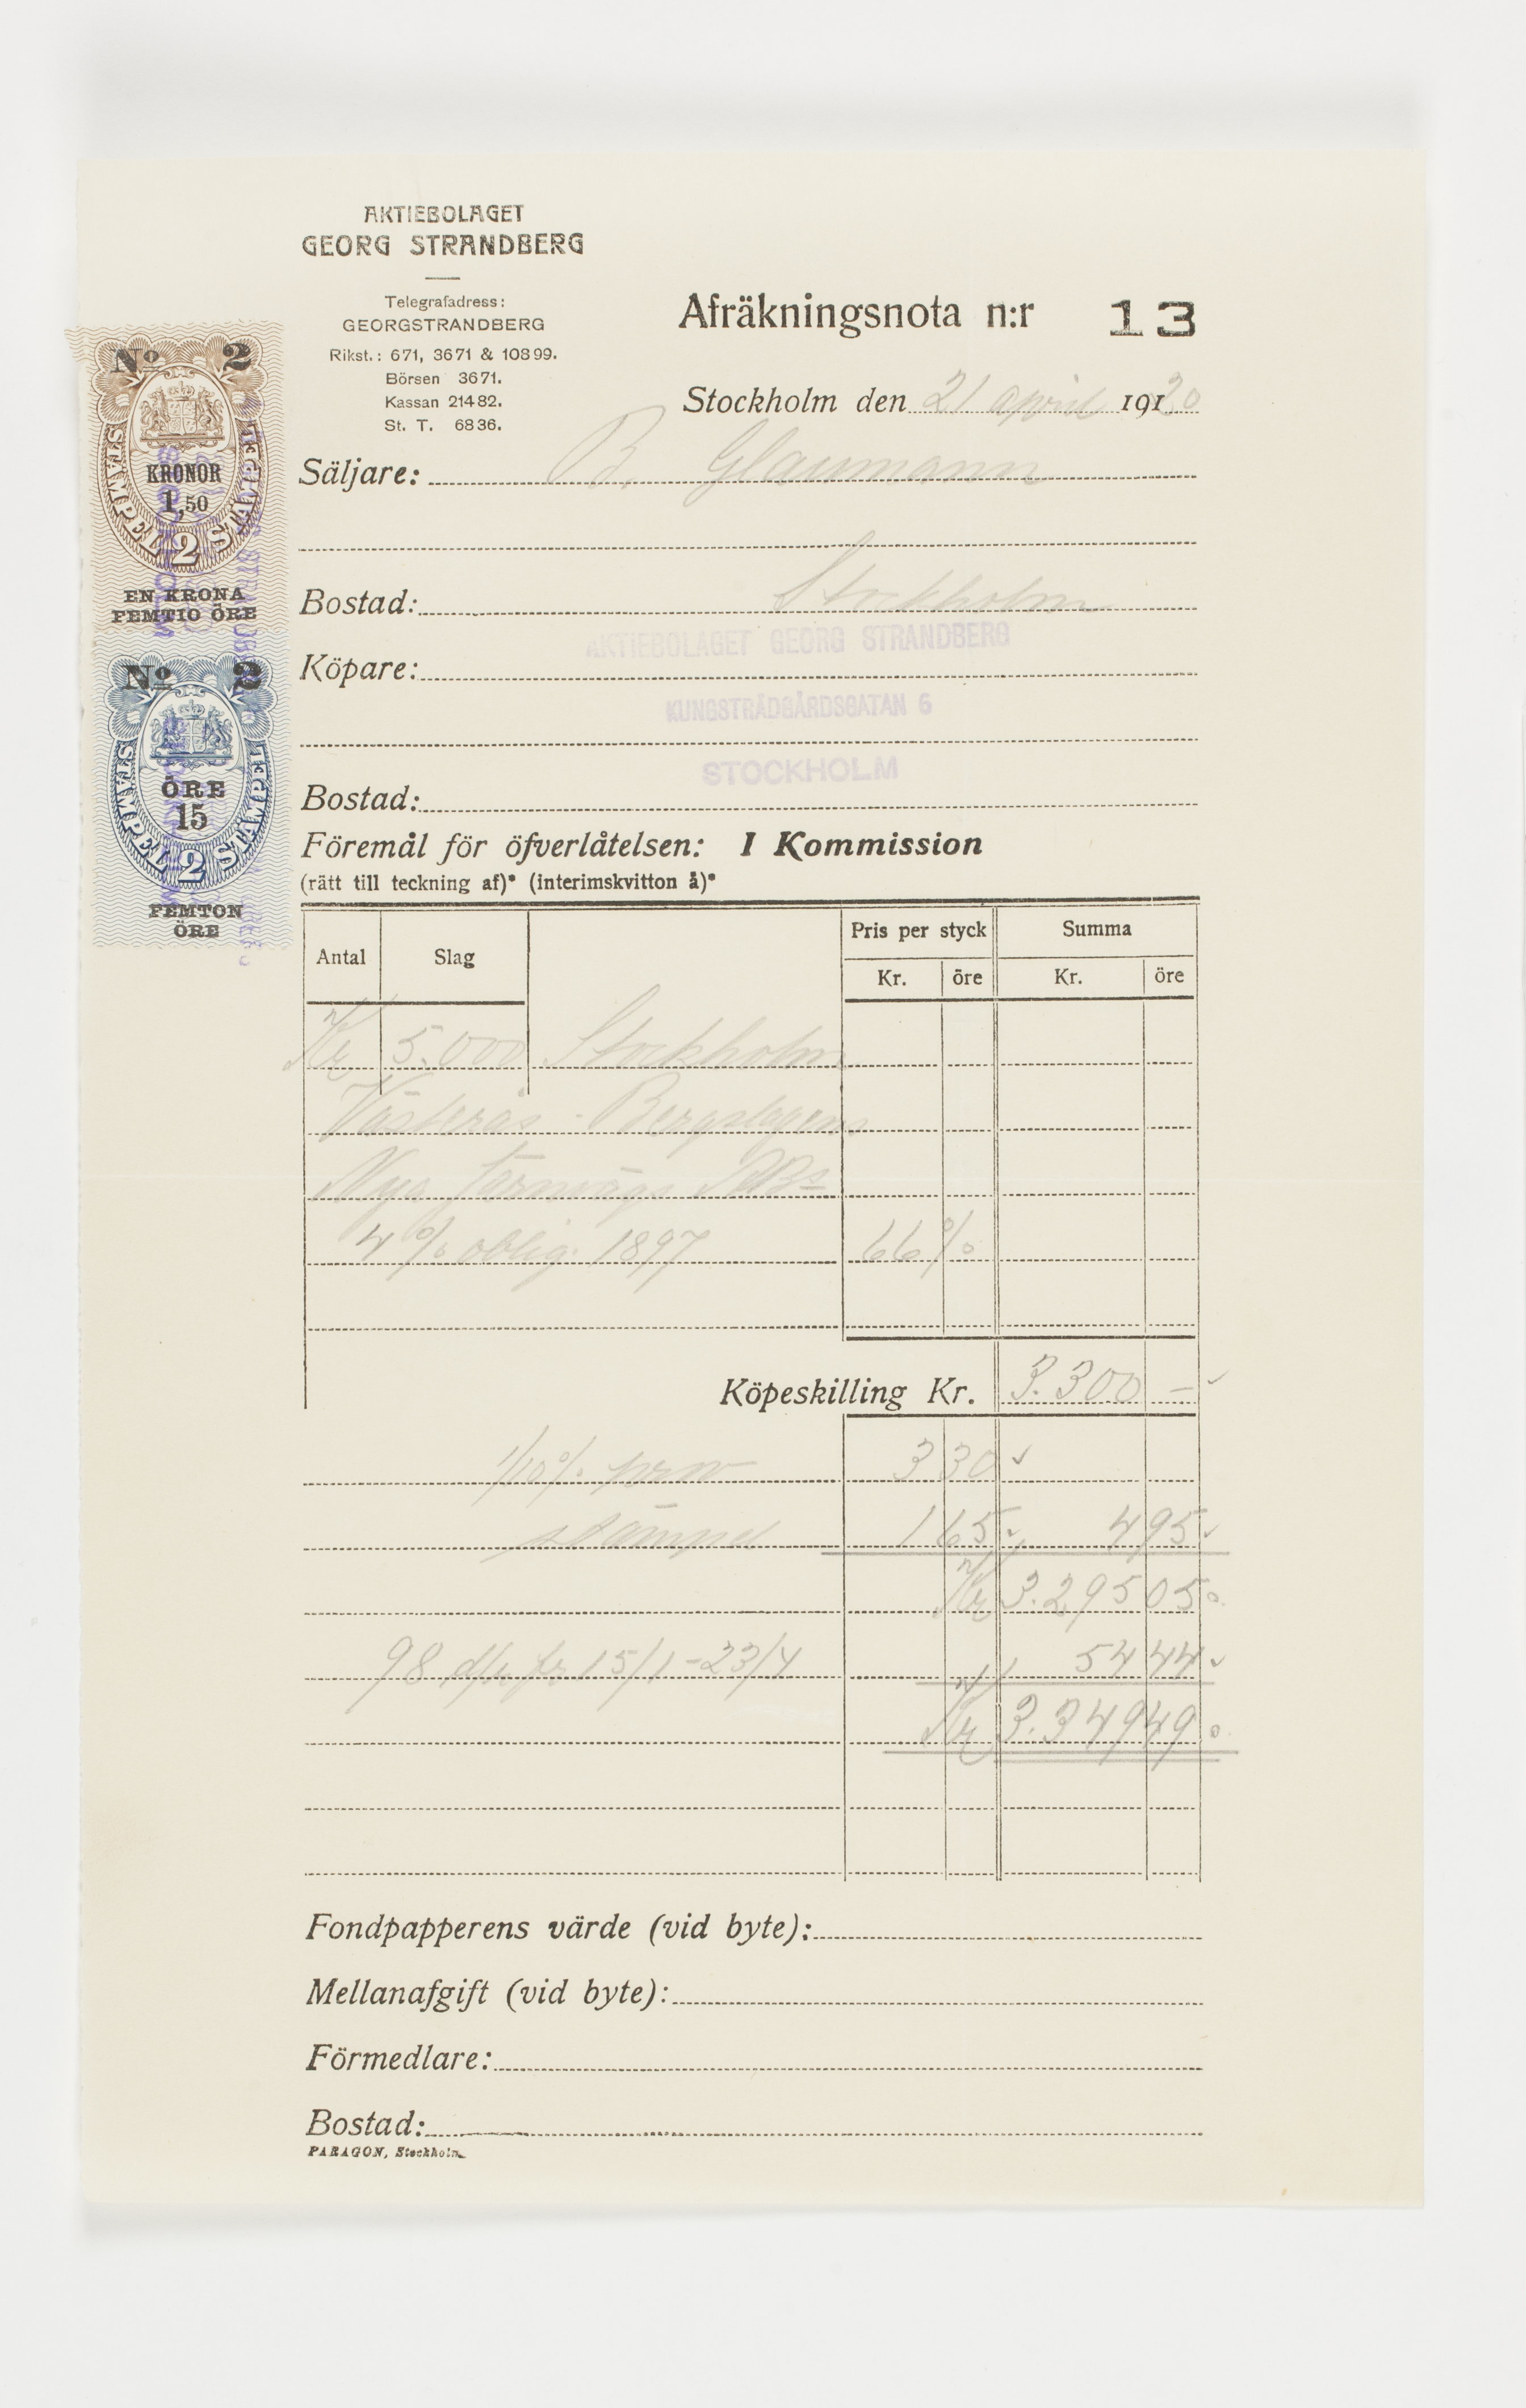 AKTIEBOLAGET
GEORG STRANDBERG
Telegrafadress:
GEORGSTRANDBERG
Rikst.: 671, 3671 & 10899.
Börsen 3671.
Kassan 21482.
St. T. 6836.
Afräkningsnota n:r 13
Stockholm den 21 april 1920
Säljare: B. Glaumann
Bostad: Stockholm
AKTIEBOLAGET GEORG STRANDBERG
Köpare:
KUNGSTRÄDGÅRDSGATAN 6
STOCKHOLM
Bostad:
Föremål för öfverlåtelsen: I Kommission
(rätt till teckning af)* (interimskvitton å)*
Antal Slag Pris per styck Summa
Kr. öre Kr. öre
Kr 5.000 Stockholm
Västerås - Bergslagens
Nya Järnvägs AB:s
4% oblig. 1897 66%
Köpeskilling Kr. 3.300 —
1/10% prov 3 30
stämpel 1 65 4 95
Kr 3.295 05
98 d/r fr 15/1-23/4 54 44
Kr 3.349 49
Fondpapperens värde (vid byte):
Mellanafgift (vid byte):
Förmedlare:
Bostad:
PARAGON, Stockholm
No 2
STÄMPEL STÄMPEL
KRONOR
1,50
2
EN KRONA
FEMTIO ÖRE
No 2
STÄMPEL STÄMPEL
ÖRE
15
2
FEMTON
ÖRE